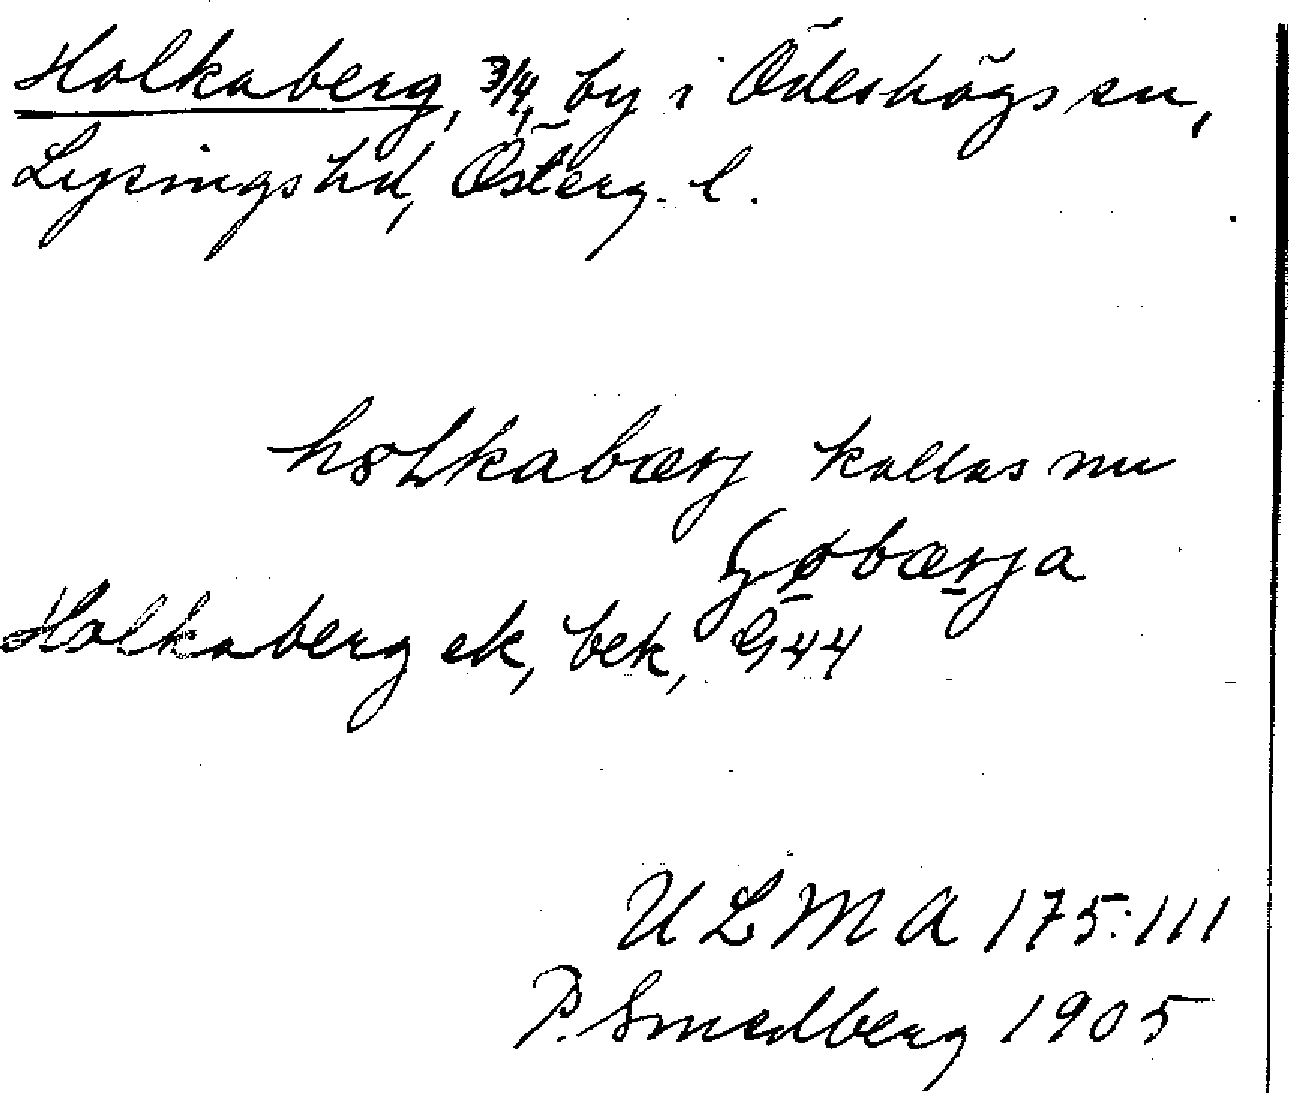 Holkaberg, 3/4, by i Ödeshögs sn,
Lysings hd, Österg. l.
hɷLkabærj kallas nu
bærja
Holkaberg ek, bek, G 44
ULMA 175:111
P. Smedberg 1905